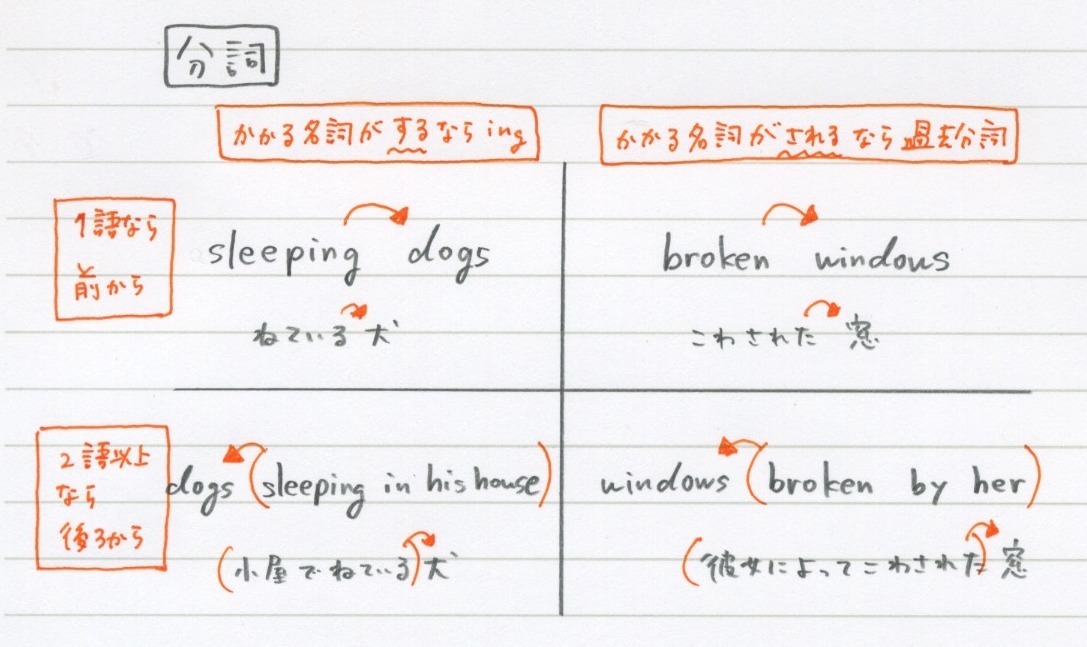 分詞
かかる名詞がするならing
かかる名詞がされるなら過去分詞
1語なら
前から
sleeping dogs
broken windows
ねている犬
こわされた窓
2語以上
なら
後ろから
dogs (sleeping in his house)
windows (broken by her)
(小屋でねている)犬
(彼女によってこわされた)窓